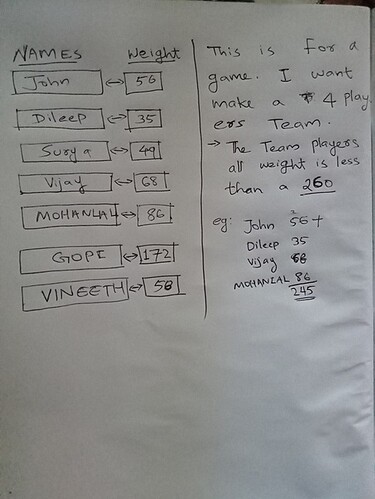 NAMES Weight
John ↔ 56
Dileep ↔ 35
Surya ↔ 49
Vijay ↔ 68
MOHANLAL ↔ 86
GOPI ↔ 172
VINEETH ↔ 58
This is For a
game. I want
make a 4 play
ers Team.
→ The Team players
all weight is less
than a 260
eg: John 56 +
Dileep 35
Vijay 68
MOHANLAL 86
245